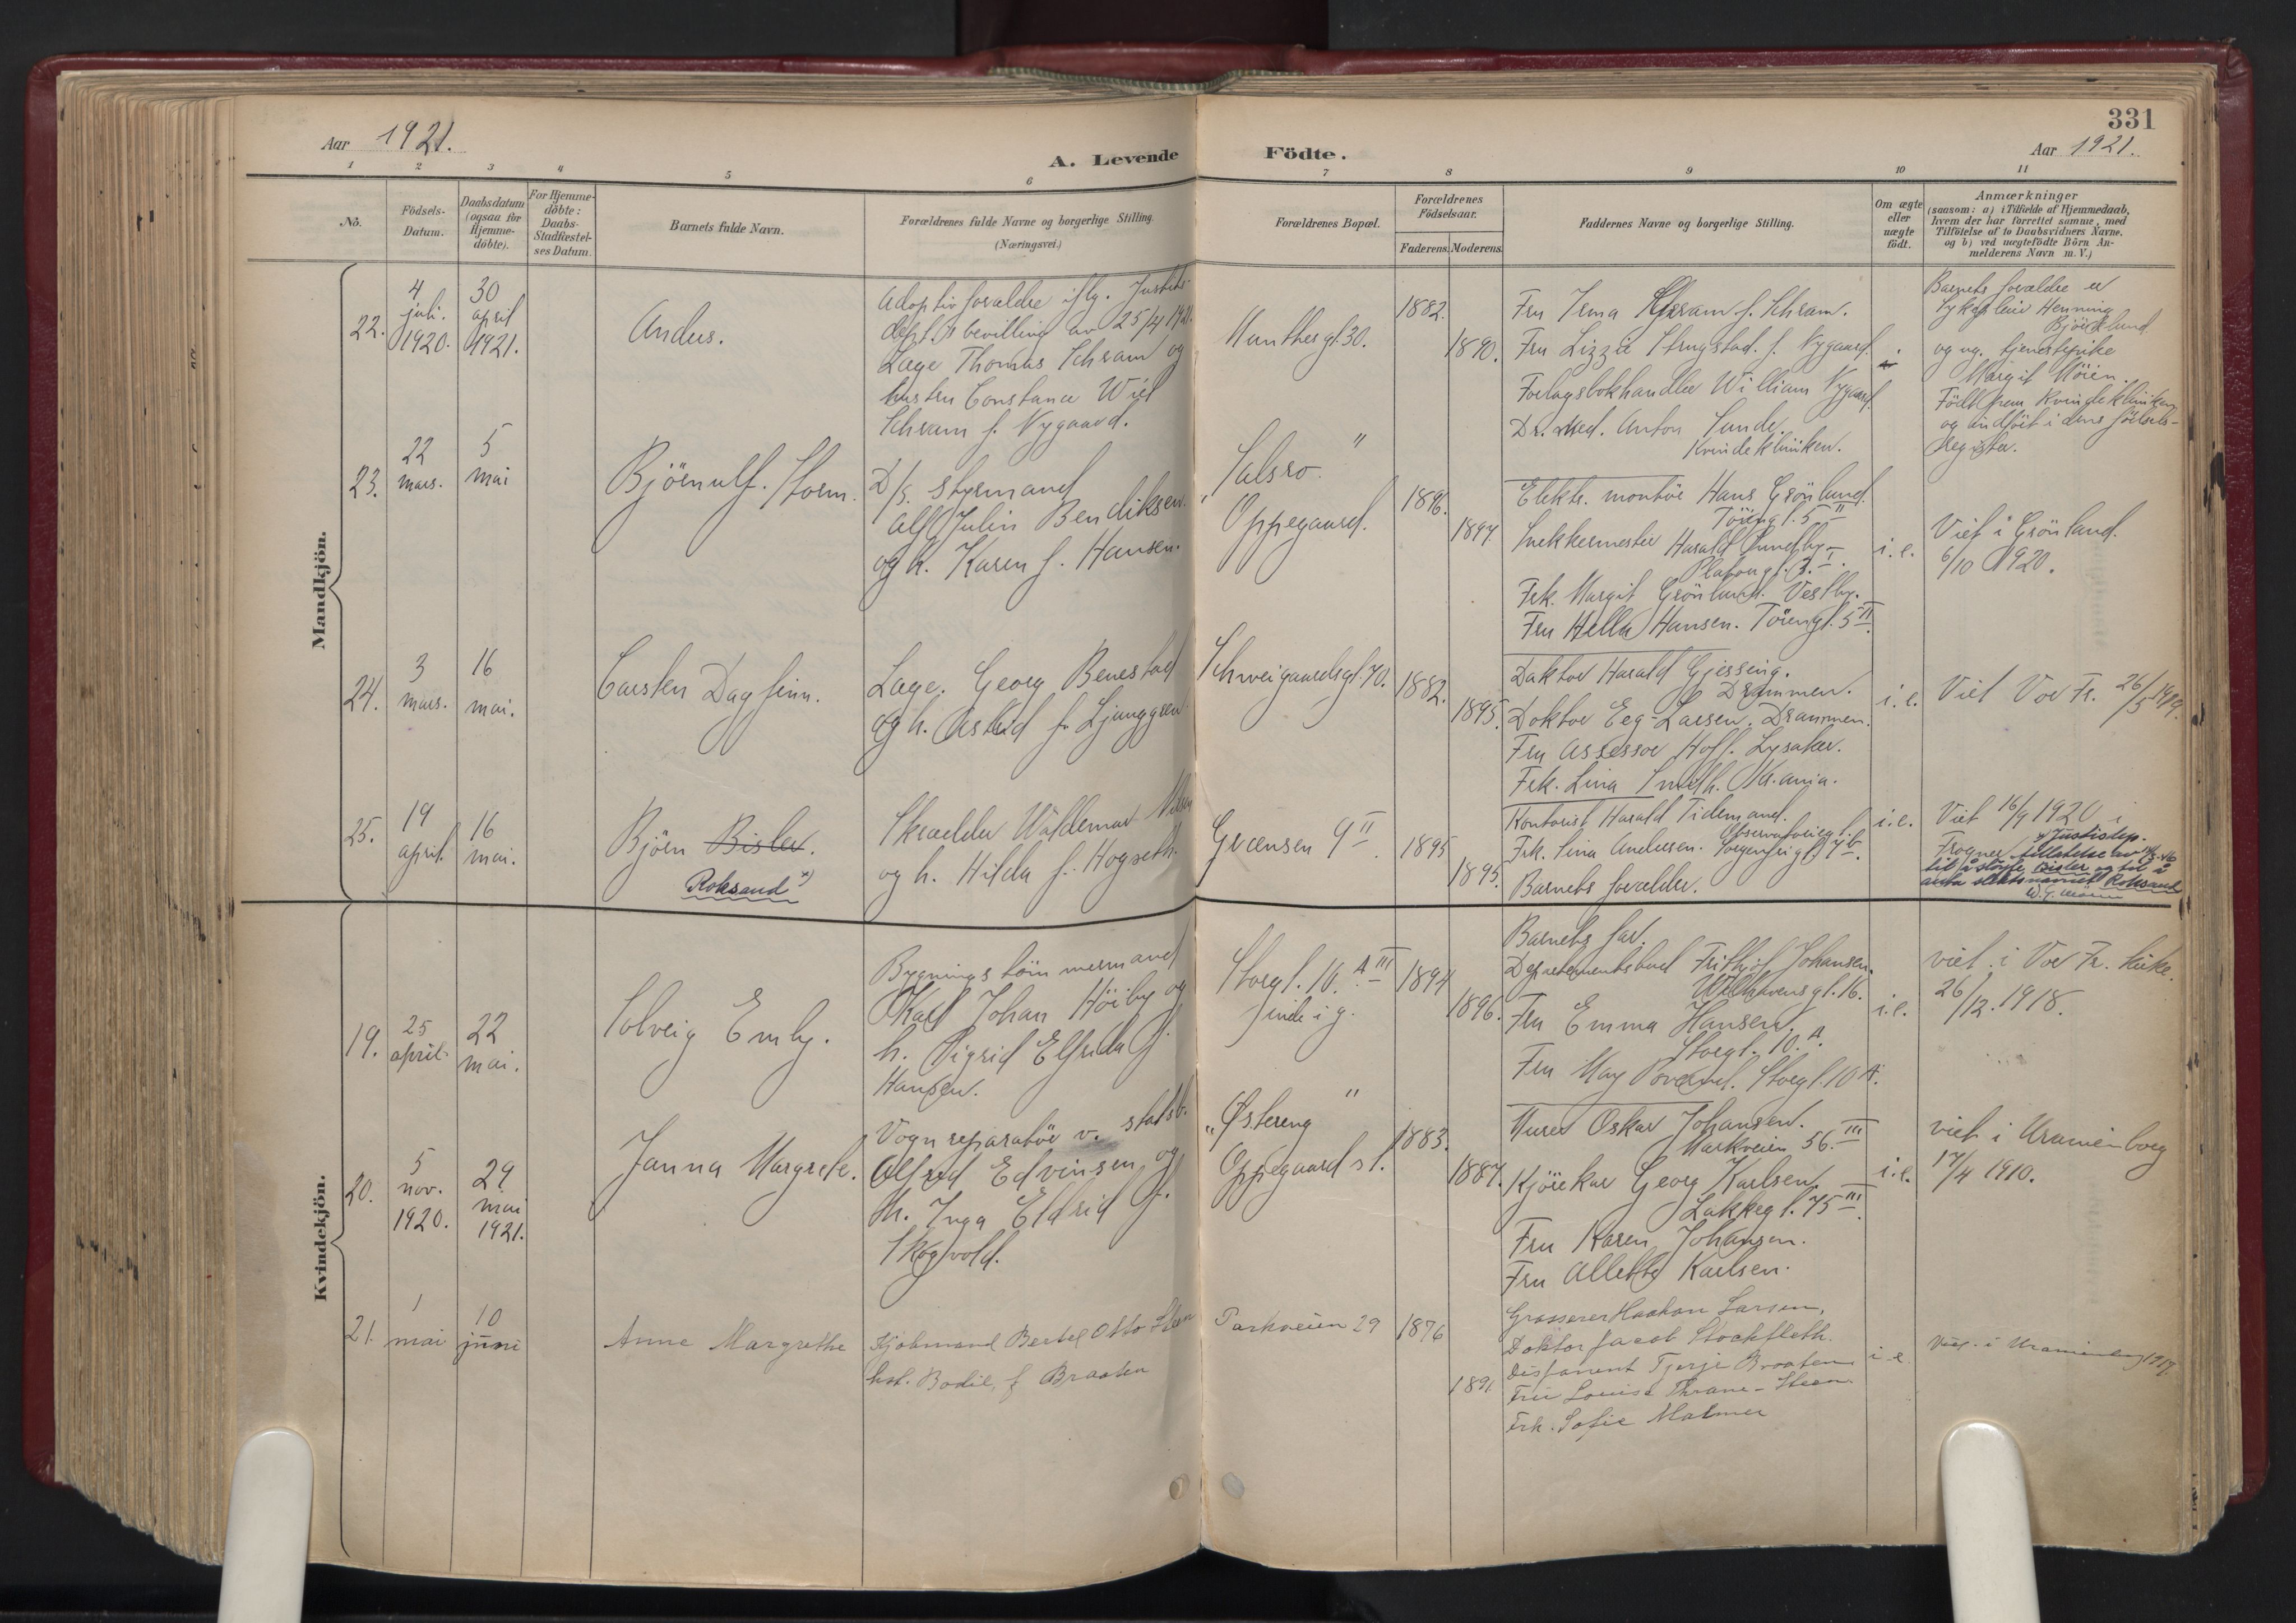 331
Aar 1921.
A. Levende Födte.
Aar 1921.
1 2 3 4 5 6 7 8 9 10 11
No.
Födsels-
Datum.
Daabsdatum
(ogsaa for
Hjemme-
döbte).
For Hjemme-
döbte:
Daabs-
Stadfæstel-
ses Datum.
Barnets fulde Navn.
Forældrenes fulde Navne og borgerlige Stilling.
(Næringsvei.)
Forældrenes Bopæl.
Forældrenes
Födselsaar.
Faderens.
Moderens.
Faddernes Navne og borgerlige Stilling.
Om ægte
eller
uægte
födt.
Anmærkninger
(saasom: a) i Tilfælde af Hjemmedaab,
hvem der har forrettet samme, med
Tilföielse af to Daabsvidners Navne,
og b) ved uægtefödte Börn An-
melderens Navn m. V.)
Mandkjön.
22.
4
juli.
1920.
30
april
1921.
Anders.
Adoptivforældre iflg. Justits-
dept.s bevilling av 25/4 1921.
Læge Thomas Schram og
hustru Constance Wiel
Schram f. Nygaard.
Munthes gt. 30.
1882.
1890.
Fru Irma Schram f. Schram.
Fru Lizzie Strugstad f. Nygaard.
Forlagsbokhandler William Nygaard.
Dr. med. Anton Sunde.
Kvindeklinikken.
Barnets forældre er
Sykepleier Henning
Björklund
og ug. tjenestepike
Margit Möien.
Födt paa Kvindeklinikken
og indfört i dens födsels-
register.
23.
22
mars.
5
mai
Björnulf Storm.
D/s. styrmand
Alf Julin Bendiksen
og h. Karen f. Hansen.
"Salsro"
Oppegaard.
1896.
1897
Elektr. montör Hans Grönlund.
Töiengt. 5 II
Snekkermester Harald Lundby
Platousgt. 3. I.
Frk. Margit Grönlund. Vestby.
Fru Hella Hansen. Töiengt. 5 II.
i.e.
Viet i Grönland.
6/10 1920.
24.
3
mars.
16
mai.
Carsten Dagfinn.
Læge. Georg Benestad
og h. Astrid f. Ljunggren
Schweigaardsgt. 70.
1882.
1895.
Doktor Harald Gjessing.
Drammen.
Doktor Eeg-Larsen. Drammen.
Fru Assessor Hoff. Lysaker.
Frk. Lina Smith. Kr.ania.
i.e.
Viet Vor Fr. 26/5 1919.
25.
19
april.
16
mai.
Björn Bisler.
Roksand x)
Skrædder Waldemar Nilsen
og h. Hilda f. Hogseth.
Grænsen 9 II.
1895
1895.
Kontorist Harald Tidemand.
Observatoriegt.
Frk. Lina Andersen. Sorgenfrigt. 7 b.
Barnets forældre.
i.e.
Viet 16/9 1920 i
Frogner x) Justisdep.
tillatelse av
til å stryke Bisler og til å
anta slektsnavnet Roksand
Kvindekjön.
19.
25
april.
22
mai.
Solveig Emly.
Bygningstömmermand
Karl Johan Höiby og
h. Sigrid Elfrida f.
Hansen.
Storgt. 10. A III
inde i g.
1894
1896.
Barnets far.
Departementsbud Frithjof Johansen.
Welhavensgt. 16.
Fru Emma Hansen.
Storgt. 10. A.
Fru May Storgt. 10 A.
i.e.
viet i Vor Fr. kirke.
26/12. 1918.
20.
5
nov.
1920.
29
mai
1921.
Janna Margrete.
Vognreparatör v. statsb.
Alfred Edvinsen og
h. Inga Eldrid f.
Skogvold.
"Østereng"
Oppegaard st.
1883.
1887.
Murer Oskar Johansen.
Markveien 56. III
Kjörekar Georg Karlsen.
Lakkegt. 75 III.
Fru Karen Johansen.
Fru Allette Karlsen.
i.e.
viet i Uranienborg
17/4 1910.
21.
1
mai
10
juni
Anne Margrethe
Kjöbmand Bertel Otto Steen
hst. Bodil f. Braaten
Parkveien 29
1876
1891
Grosserer Haakon Larsen,
Doktor Jacob Stockfleth.
Disponent Tjerje Braaten
Fru Louise Thrane-Steen
Frk. Sofie Malmer
i e.
Viet i Uranienborg 1919.